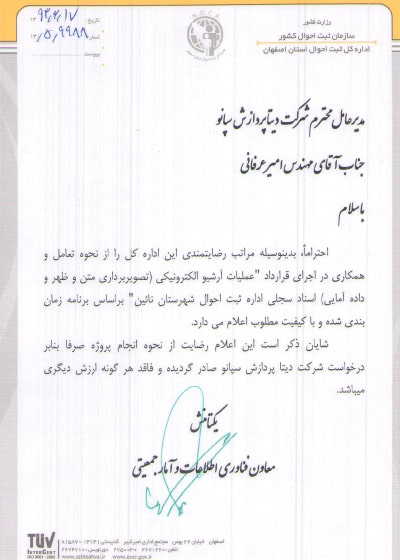 وزارت کشور
سازمان ثبت احوال کشور
اداره کل ثبت احوال استان اصفهان
تاریخ: ۹۳,۲,۱۷
شماره: ۱۳,۵,۹۹۸۸
پیوست
مدیرعامل محترم شرکت دیتاپردازش سپانو
جناب آقای مهندس امیرعرفانی
باسلام
احتراماً، بدینوسیله مراتب رضایتمندی این اداره کل را از نحوه تعامل و
همکاری در اجرای قرارداد "عملیات آرشیو الکترونیکی (تصویربرداری متن و ظهر و
داده آمایی) اسناد سجلی اداره ثبت احوال شهرستان نائین" براساس برنامه زمان
بندی شده و با کیفیت مطلوب اعلام می دارد.
شایان ذکر است این اعلام رضایت از نحوه انجام پروژه صرفا بنابر
درخواست شرکت دیتا پردازش سپانو صادر گردیده و فاقد هر گونه ارزش دیگری
میباشد.
یکتامنش
معاون فناوری اطلاعات و آمار جمعیتی
TÜV
INTERCERT
اصفهان خیابان ۲۲ بهمن مجتمع اداری امیرکبیر